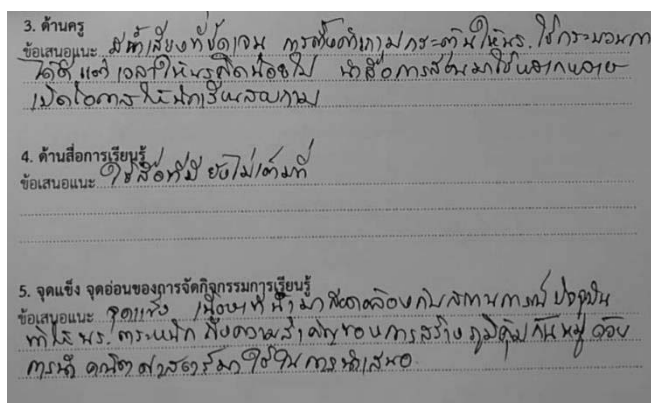 3. ด้านครู
ข้อเสนอแนะ มีน้ำเสียงที่ชัดเจน การตั้งคำถามกระตุ้นให้นร. ใช้กระบวนกา
ได้ดี แต่ เวลาให้นรคิดน้อยไป นำสื่อการสอนมาใช้หลากหลาย
เปิดโอกาสให้นักเรียนสอบถาม
4. ด้านสื่อการเรียนรู้
ข้อเสนอแนะ ใช้สื่อที่มี ยังไม่เต็มที่
5. จุดแข็ง จุดอ่อนของการจัดกิจกรรมการเรียนรู้
ข้อเสนอแนะ จุดแข็ง เนื้อหาที่นำมาสอดคล้องกับสถานการณ์ปัจจุบัน
ทำให้ นร. ตระหนัก ถึงความสำคัญของการสร้างภูมิคุ้มกันหมู่ ด้วย
การนำ คณิตศาสตร์มาใช้ในการนำเสนอ